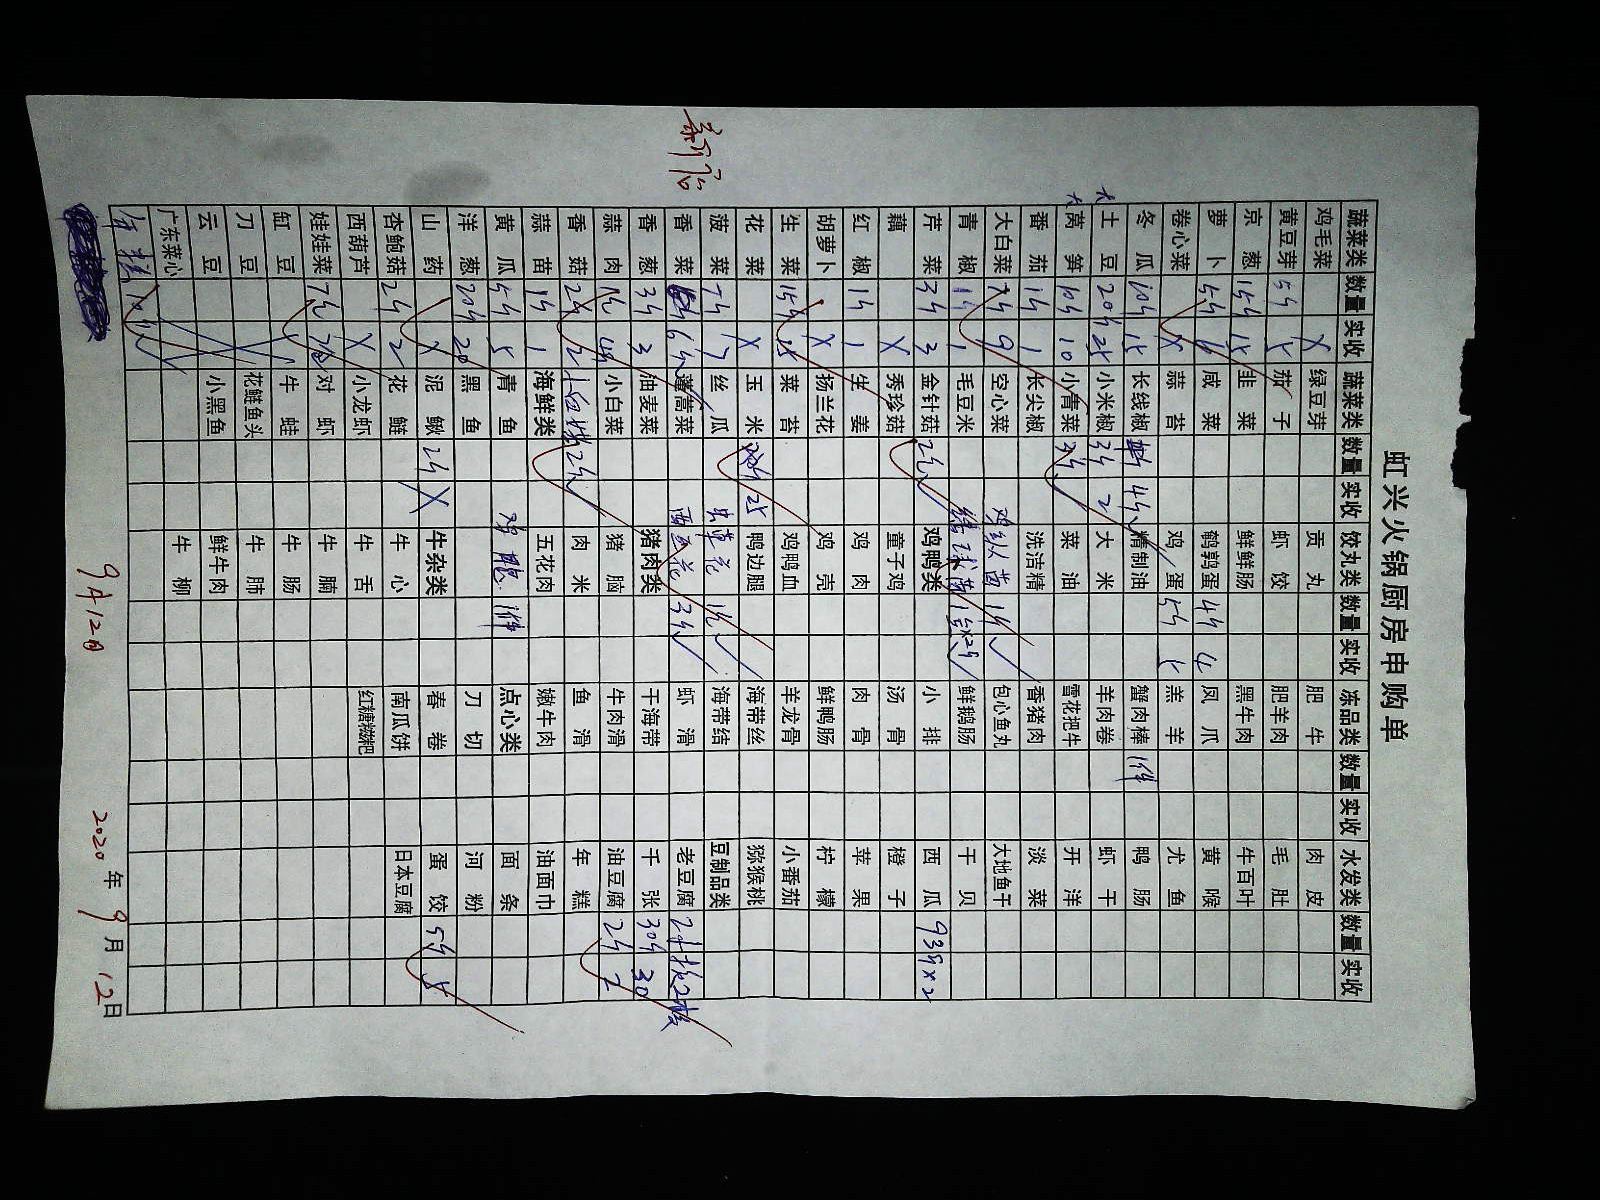 虹兴火锅厨房申购单
蔬菜类 数量 实收 蔬菜类 数量 实收 饺丸类 数量 实收 冻品类 数量 实收 水发类 数量 实收
鸡毛菜 X 绿豆芽 贡丸 肥牛 肉皮
黄豆芽 5斤 5 茄子 虾饺 肥羊肉 毛肚
京葱 15斤 15 韭菜 鲜鲜肠 黑牛肉 牛百叶
萝卜 5斤 咸菜 鹌鹑蛋 4斤 4 凤爪 黄喉
卷心菜 X 蒜苔 鸡蛋 5斤 5 羔羊 尤鱼
冬瓜 10斤 15 长线椒 4斤 精制油 蟹肉棒 1件 鸭肠
大土豆 20斤 25 小米椒 3斤 2 大米 羊肉卷 虾干
大莴笋 10斤 10 小青菜 3斤 菜油 雪花把牛 开洋
番茄 1斤 1 长尖椒 洗洁精 香猪肉 淡菜
大白菜 9 空心菜 鸡纵菌 1斤 包心鱼丸 大地鱼干
青椒 1斤 1 毛豆米 鲜鹅肠 干贝
芹菜 3斤 3 金针菇 2斤 鸡鸭类 小排 西瓜 93斤x2
藕 X 秀珍菇 童子鸡 汤骨 橙子
红椒 1斤 1 生姜 鸡肉 肉骨 苹果
胡萝卜 X 扬兰花 鸡壳 鲜鸭肠 柠檬
生菜 15斤 15 菜苔 鸡鸭血 羊龙骨 小番茄
花菜 X 玉米 25 鸭边腿 海带丝 猕猴桃
菠菜 7斤 7 丝瓜 虫草花 1斤 海带结 豆制品类
香菜 6斤 蓬蒿菜 西兰花 3斤 虾滑 老豆腐 2板
香葱 3斤 3 油麦菜 猪肉类 干海带 千张 30斤 30
蒜肉 小白菜 猪脑 牛肉滑 油豆腐 2斤 2
香菇 2斤 2 2斤 肉米 鱼滑 年糕
蒜苗 1斤 1 海鲜类 五花肉 嫩牛肉 油面巾
黄瓜 5斤 5 青鱼 鸡腿 1件 点心类 面条
洋葱 20斤 20 黑鱼 刀切 河粉
山药 X 泥鳅 2斤 X 牛杂类 春卷 蛋饺 5斤 5
杏鲍菇 2斤 2 花鲢 牛心 南瓜饼 日本豆腐
西葫芦 X 小龙虾 牛舌 红糖糍粑
娃娃菜 7斤 对虾 牛腩
缸豆 牛蛙 牛肠
刀豆 花鲢鱼头 牛肺
云豆 小黑鱼 鲜牛肉
广东菜心 牛柳
9月12日 2020年9月12日